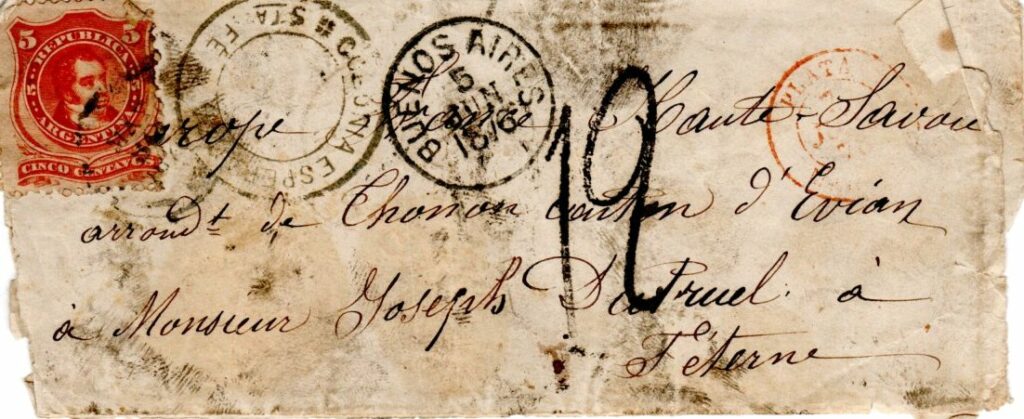 5 5
REPUBLICA
5 5
ARGENTINA
CINCO CENTAV
COLONIA ESPER
STA FE
BUENOS AIRES
5
JUN
1876
PLATA
12
Europe France Haute-Savoie
arrondt de Thonon Canton d'Evian
à Monsieur Joseph Dutruel à
Féterne